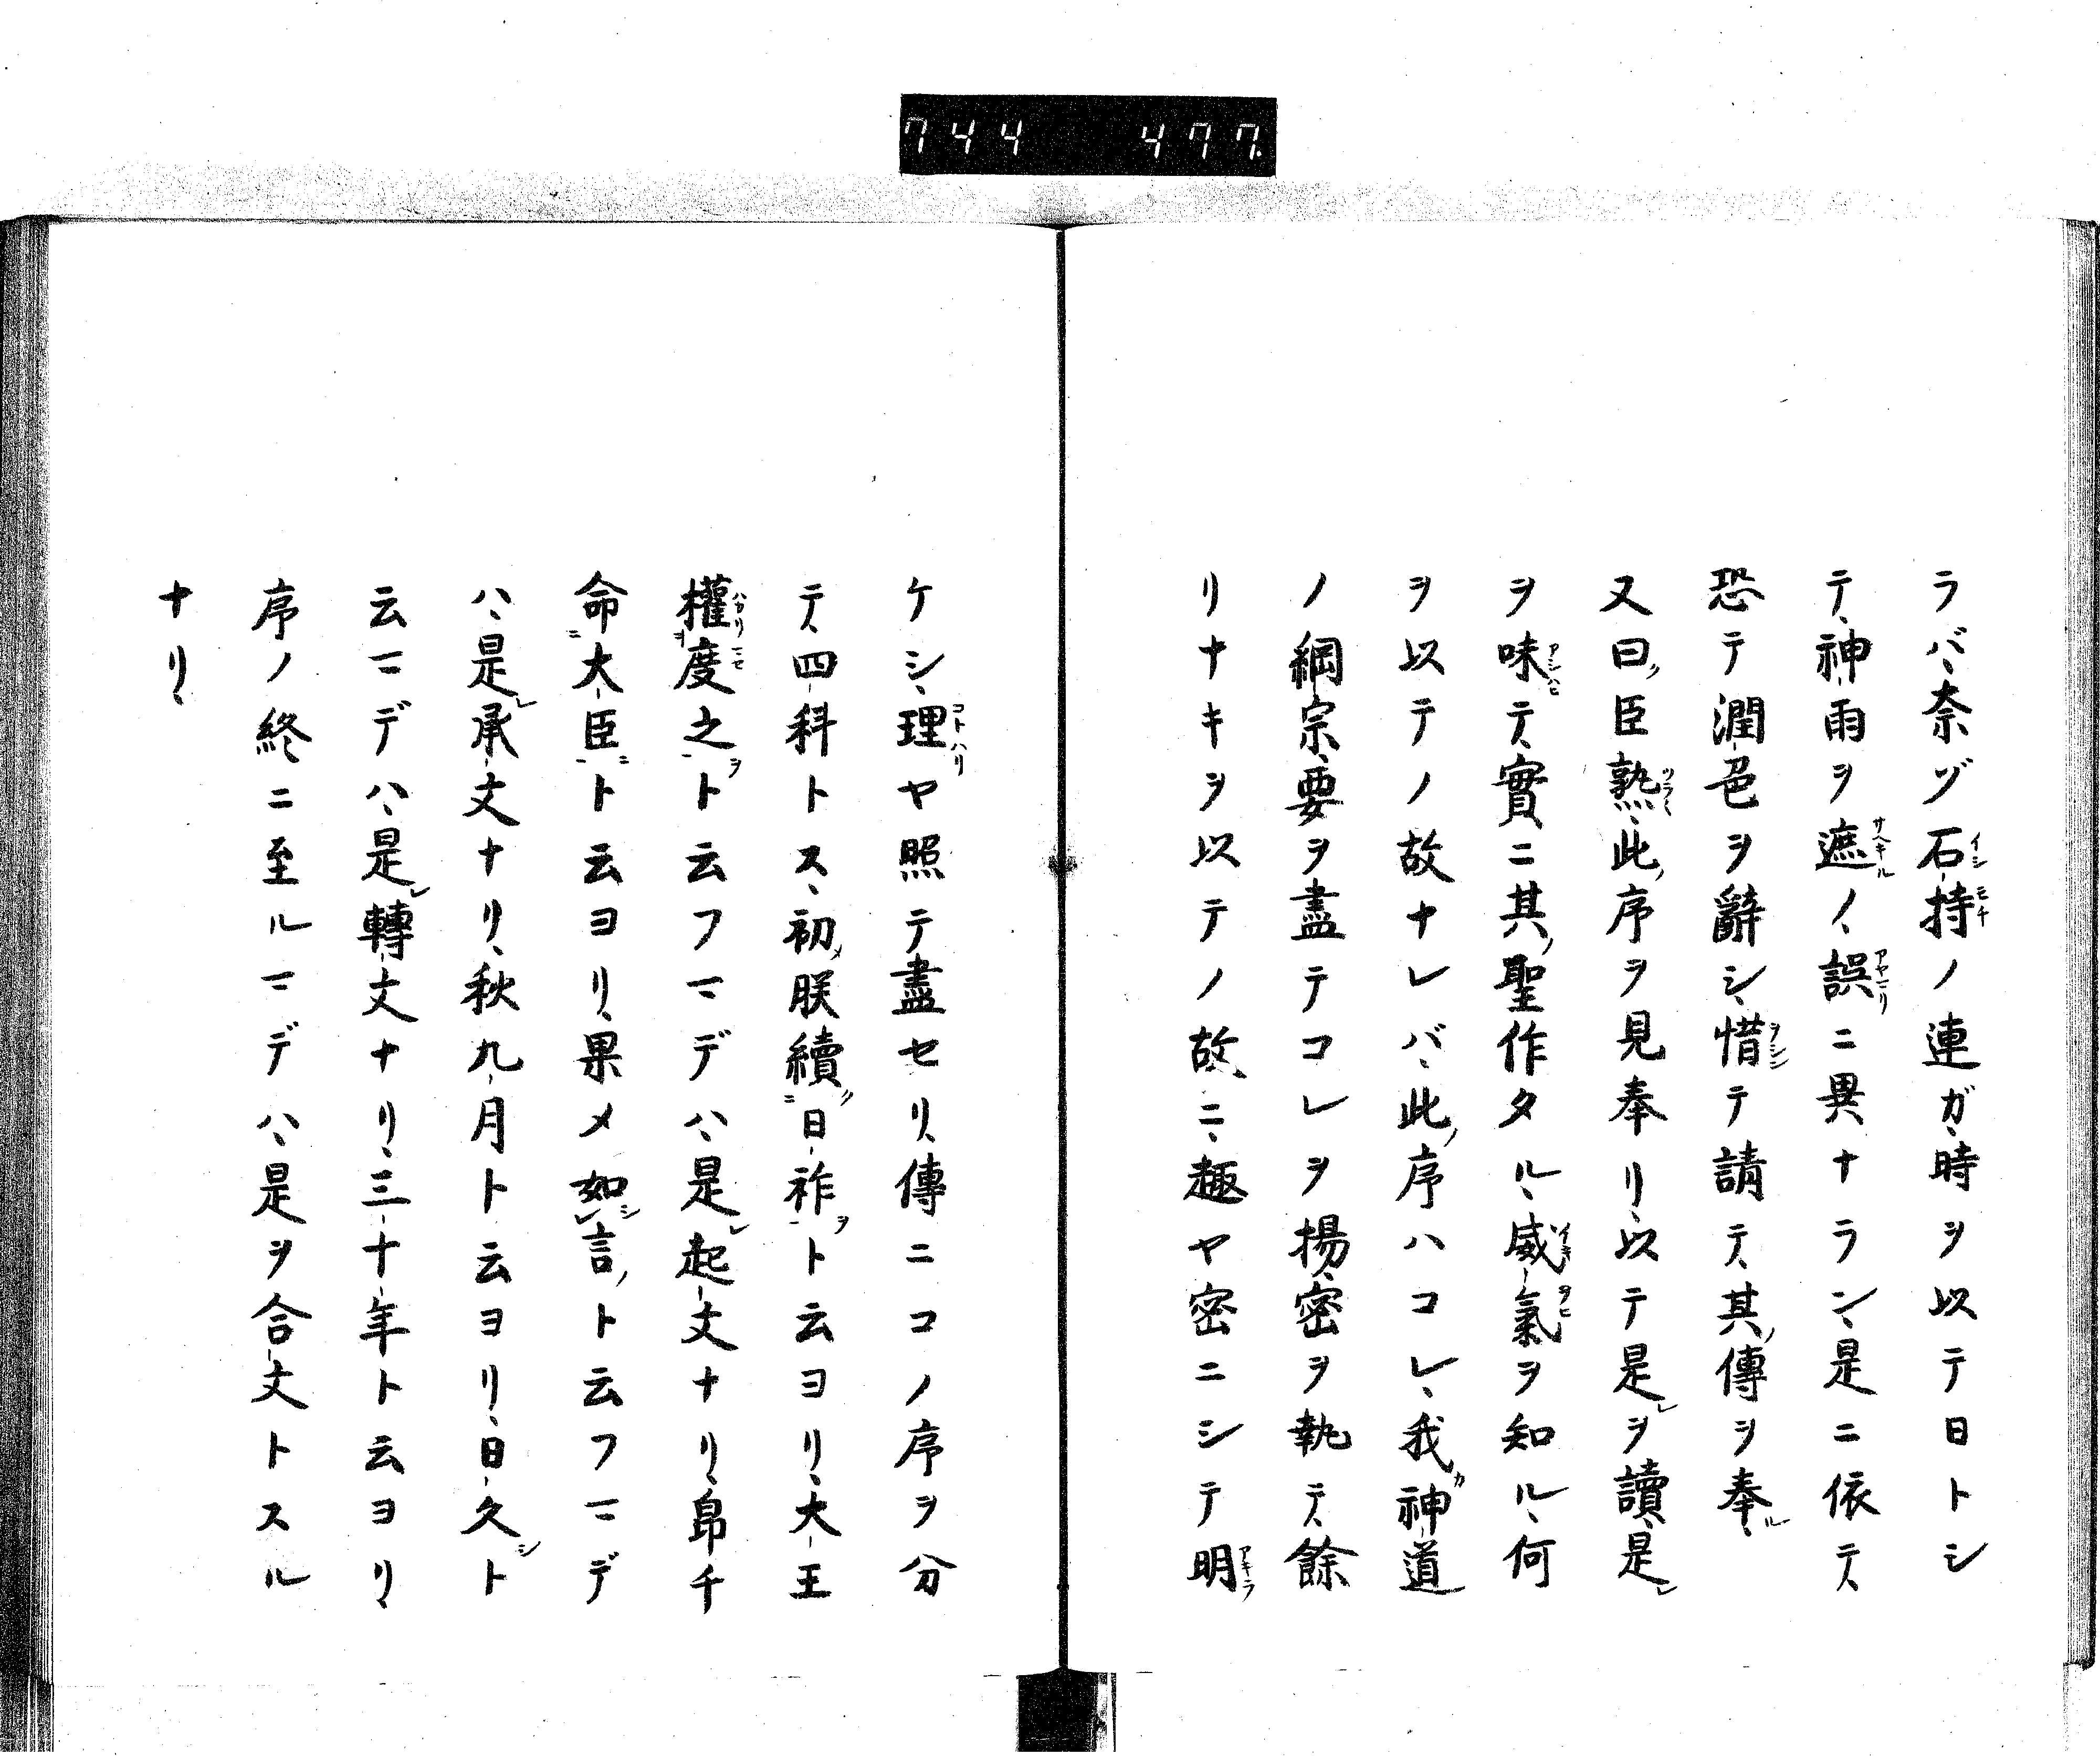 744 477
ラバ、奈ゾ石持ノ連ガ、時ヲ以テ日トシ
テ、神雨ヲ遮ノ、誤ニ異ナラン、是ニ依テ、
恐テ潤色ヲ辭シ、惜テ請テ、其傳ヲ奉、
又曰、臣熟、此序ヲ見奉リ、以テ是ヲ讀、是
ヲ味テ、實ニ其聖作タル、威氣ヲ知ル、何
ヲ以テノ故ナレバ、此序ハコレ、我神道
ノ綱宗、要ヲ盡テコレヲ揚、密ヲ執テ、餘
リナキヲ以テノ故、ニ、趣ヤ密ニシテ明
ケシ、理ヤ照テ盡セリ、傳ニコノ序ヲ分
テ、四科トス、初朕續日祚ト云ヨリ、大王
權度之ト云フマデハ、是起文ナリ、帛千
命大臣ト云ヨリ、果メ如言ト云フマデ
ハ、是承文ナリ、秋九月ト云ヨリ、日久ト
云マデハ、是轉文ナリ、三十年ト云ヨリ、
序ノ終ニ至ルマデハ、是ヲ合文トスル
ナリ、